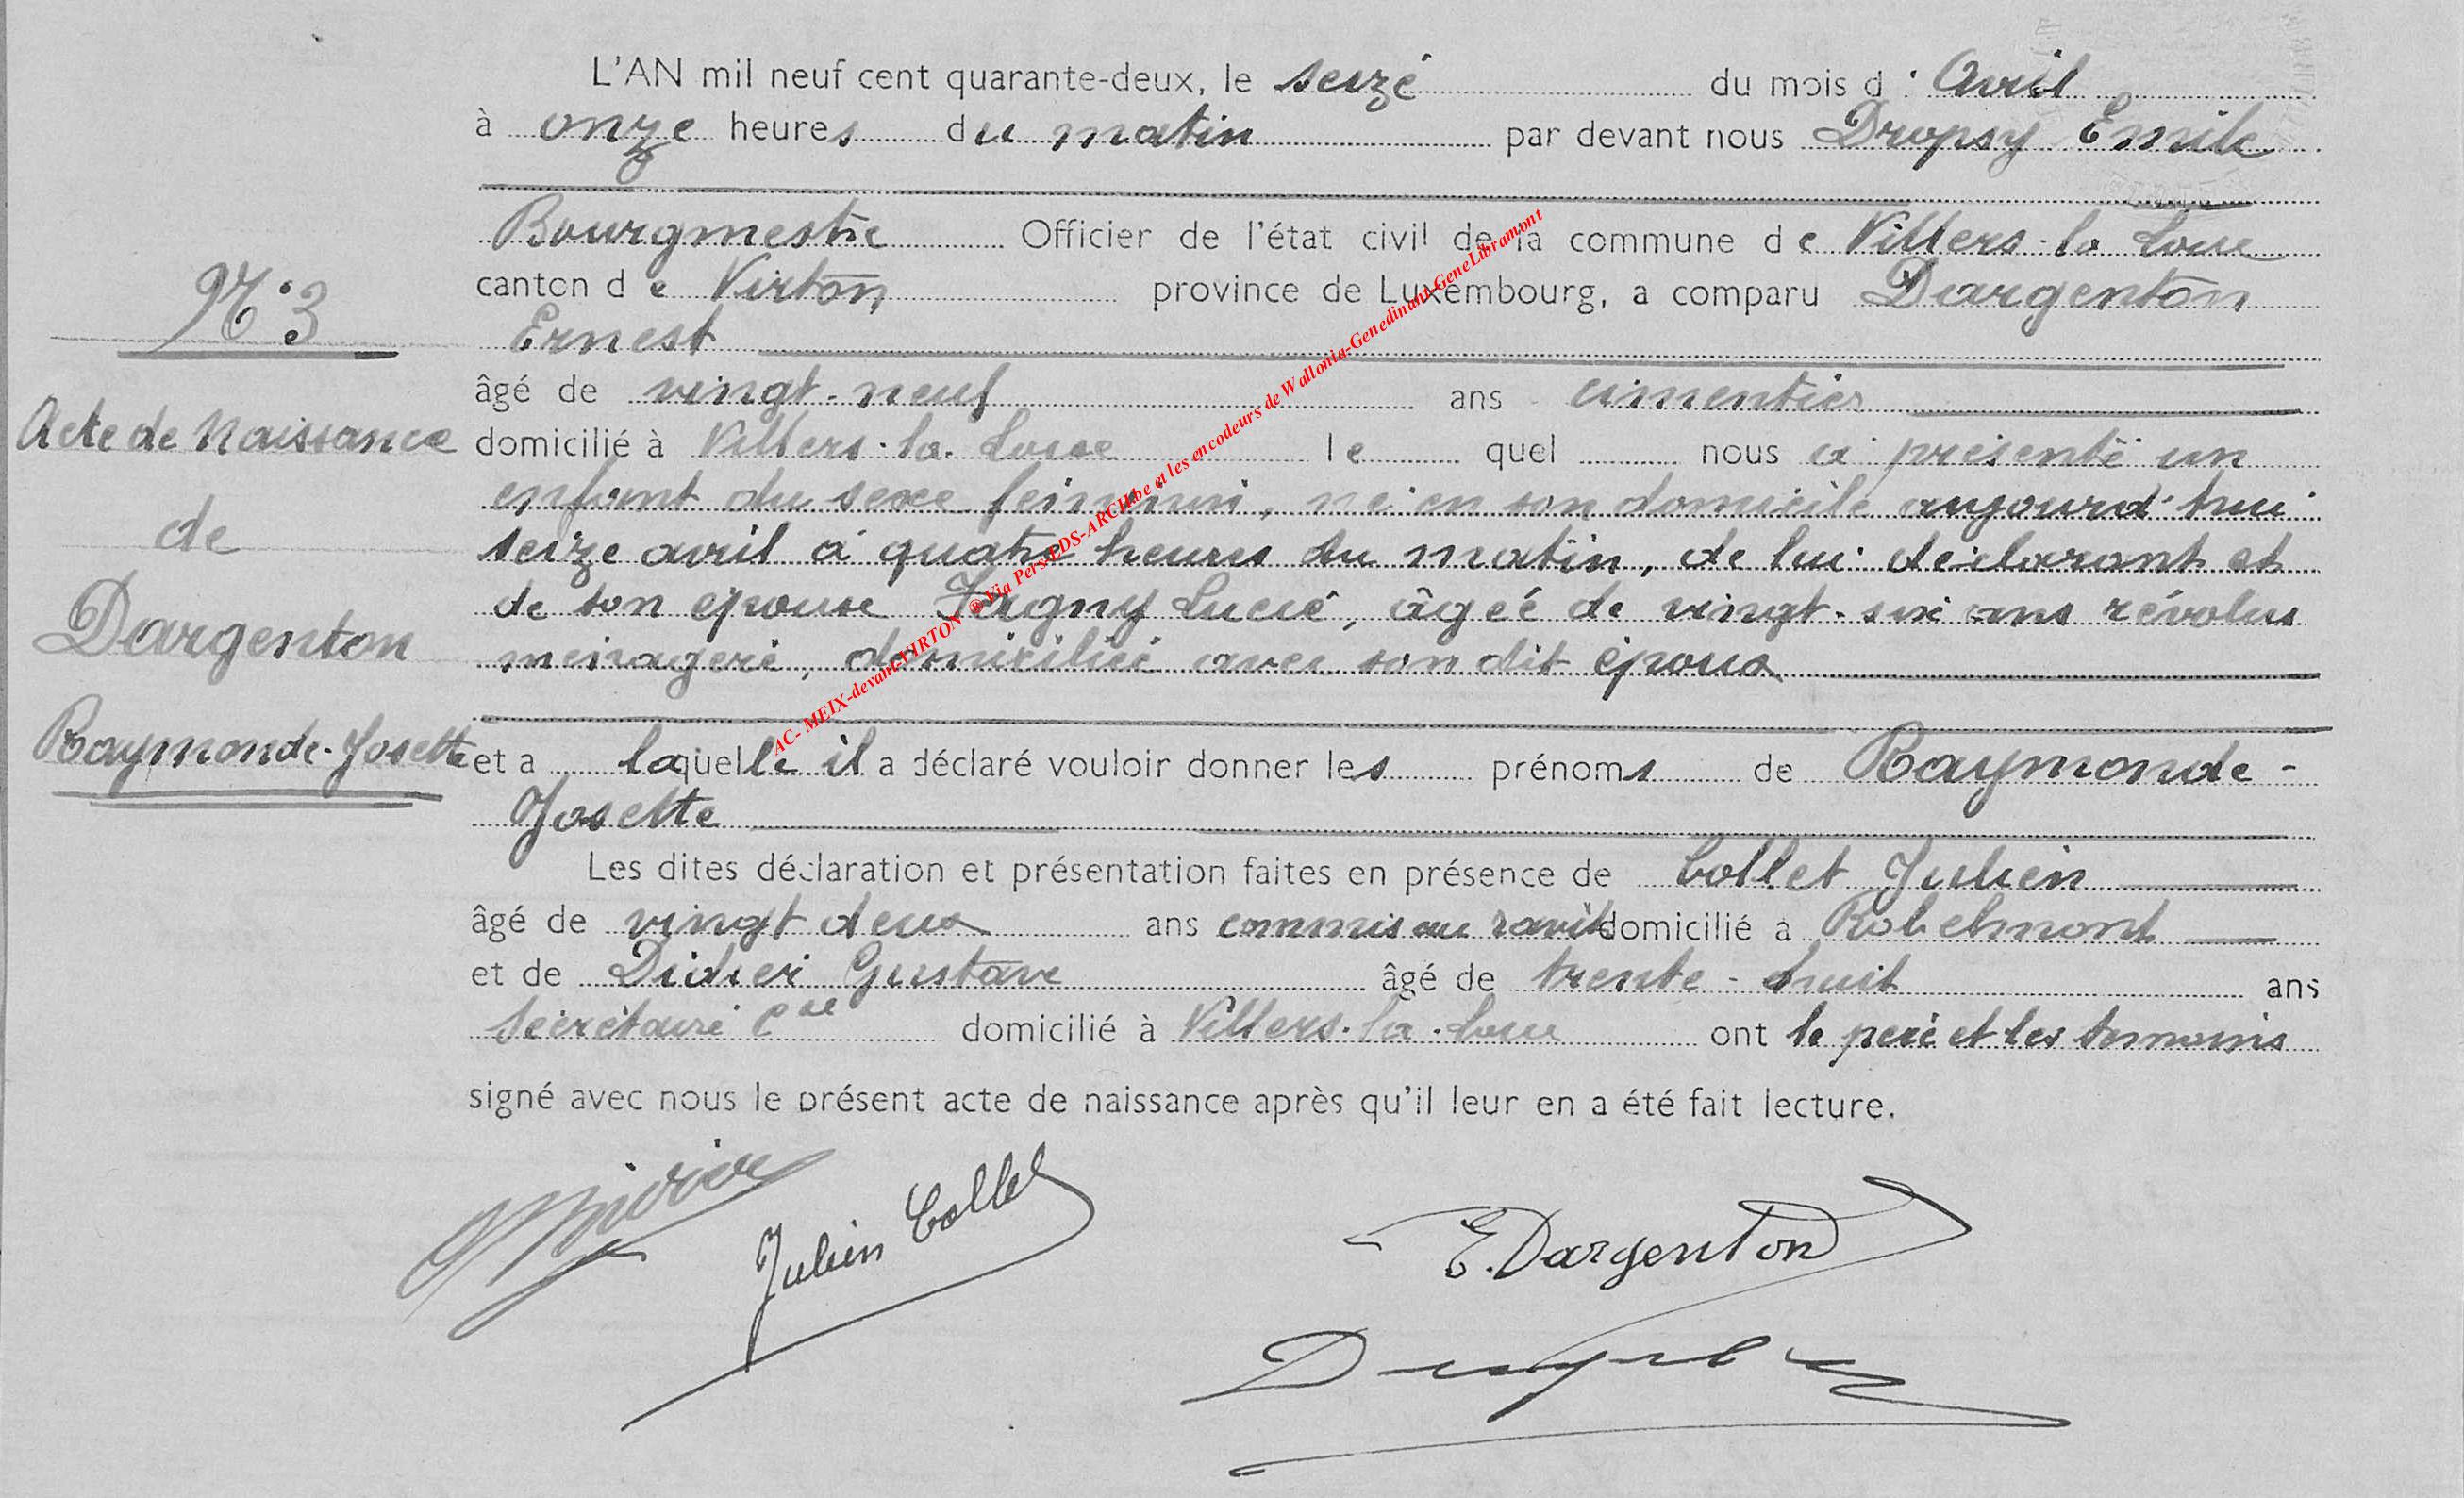 L'AN mil neuf cent quarante-deux, le seize du mois d' Avril
à onze heures du matin par devant nous Dropsy Emile
Bourgmestre Officier de l'état civil de la commune de Villers-la-Loue
canton de Virton province de Luxembourg, a comparu Dargenton
Ernest
âgé de vingt-neuf ans cimentier
domicilié à Villers-la-Loue le quel nous a présenté un
enfant du sexe féminin, né en son domicile aujourd'hui
seize avril à quatre heures du matin, de lui déclarant et
de son épouse Lucie, âgée de vingt-six ans révolus
ménagère, domiciliée avec son dit époux
et a laquelle il a déclaré vouloir donner les prénoms de Raymonde-
Josette
Les dites déclaration et présentation faites en présence de Collet Julien
âgé de vingt deux ans commis au ravit domicilié à Robelmont
et de Didier Gustave âgé de trente-huit ans
secrétaire Cal domicilié à Villers-la-Loue ont le père et les témoins
signé avec nous le présent acte de naissance après qu'il leur en a été fait lecture.
N° 3
Acte de Naissance
de
Dargenton
Raymonde-Josette
Didier
Julien Collet
E. Dargenton
Dropsy
AC- MEIX-devant-VIRTON ® Via Pers-EDS-ARCH.be et les encodeurs de Wallonia-Genedinant-GeneLibramont